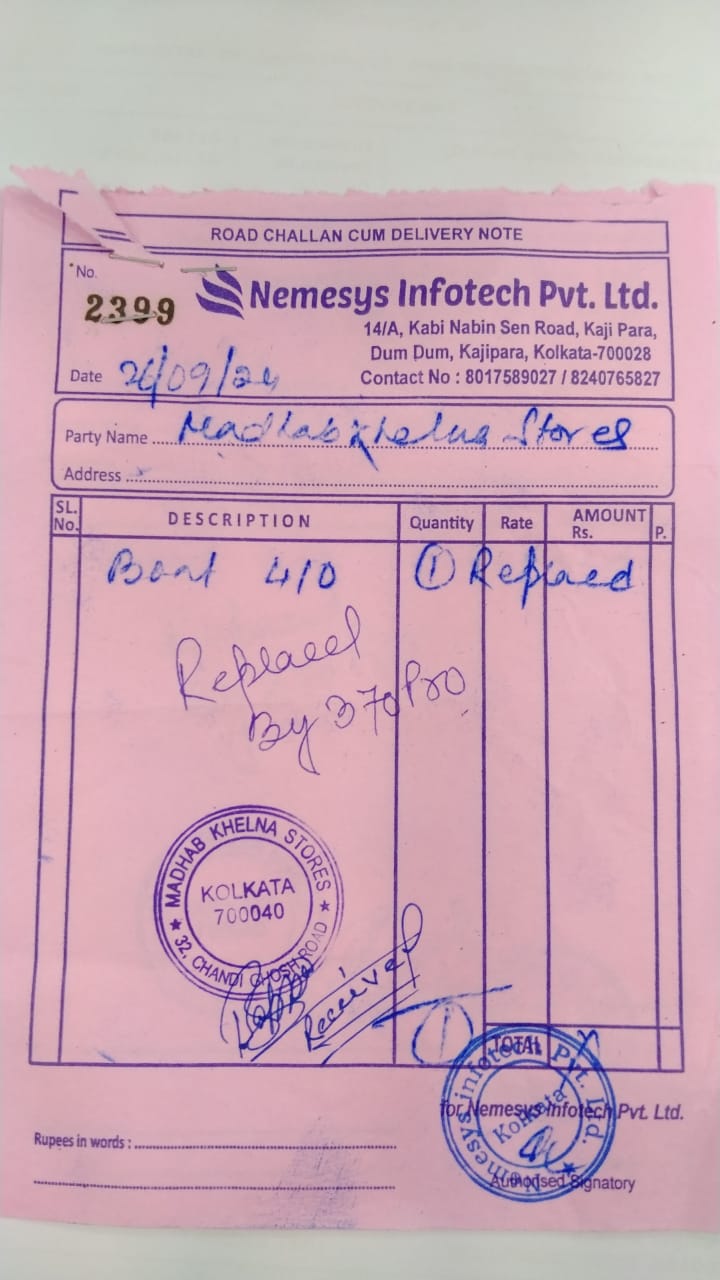 ROAD CHALLAN CUM DELIVERY NOTE
No.
2399
Nemesys Infotech Pvt. Ltd.
14/A, Kabi Nabin Sen Road, Kaji Para,
Dum Dum, Kajipara, Kolkata-700028
Contact No : 8017589027 / 8240765827
Date 26/09/24
Party Name Madhab Khelna Stores
Address
SL. No. DESCRIPTION Quantity Rate AMOUNT Rs. P.
Boat 410 1 Replaed
Replaced
By 370 Pro
MADHAB KHELNA STORES
KOLKATA
700040
32, CHANDI GHOSH ROAD
Received
1 TOTAL
Nemesys infotech Pvt. Ltd.
Kolkata
for Nemesys Infotech Pvt. Ltd.
Rupees in words :
Authorised Signatory